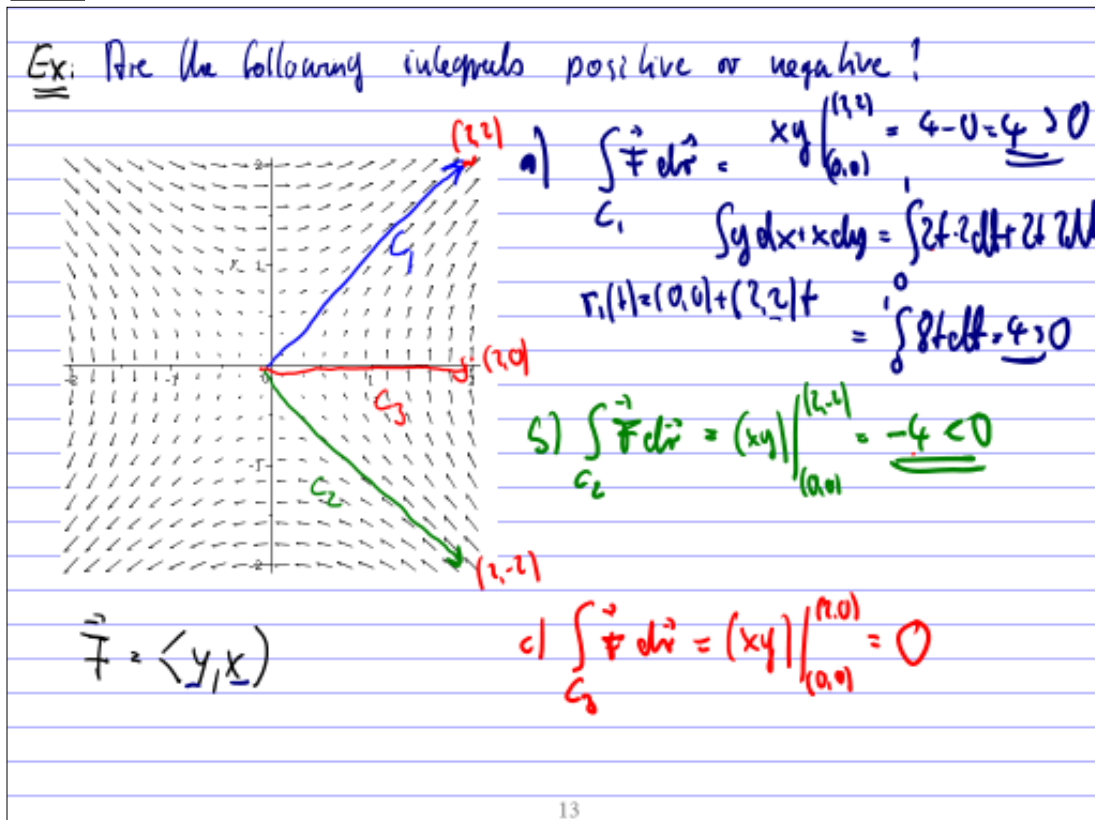 Ex: Are the following integrals positive or negative?
(2,2)
2
1
-2 -1 0 1 2
-1
-2
C₁
(2,0)
C₃
C₂
(2,-2)
F⃗ = ⟨y, x⟩
a) ∫_{C₁} F⃗ dr⃗ = xy |_{(0,0)}^{(2,2)} = 4-0 = 4 > 0
∫ y dx + x dy = ∫_0^1 2t·2dt + 2t 2dt
r₁(t) = (0,0) + (2,2)t
= ∫_0^1 8t dt = 4 > 0
b) ∫_{C₂} F⃗ dr⃗ = (xy) |_{(0,0)}^{(2,-2)} = -4 < 0
c) ∫_{C₃} F⃗ dr⃗ = (xy) |_{(0,0)}^{(2,0)} = 0
13